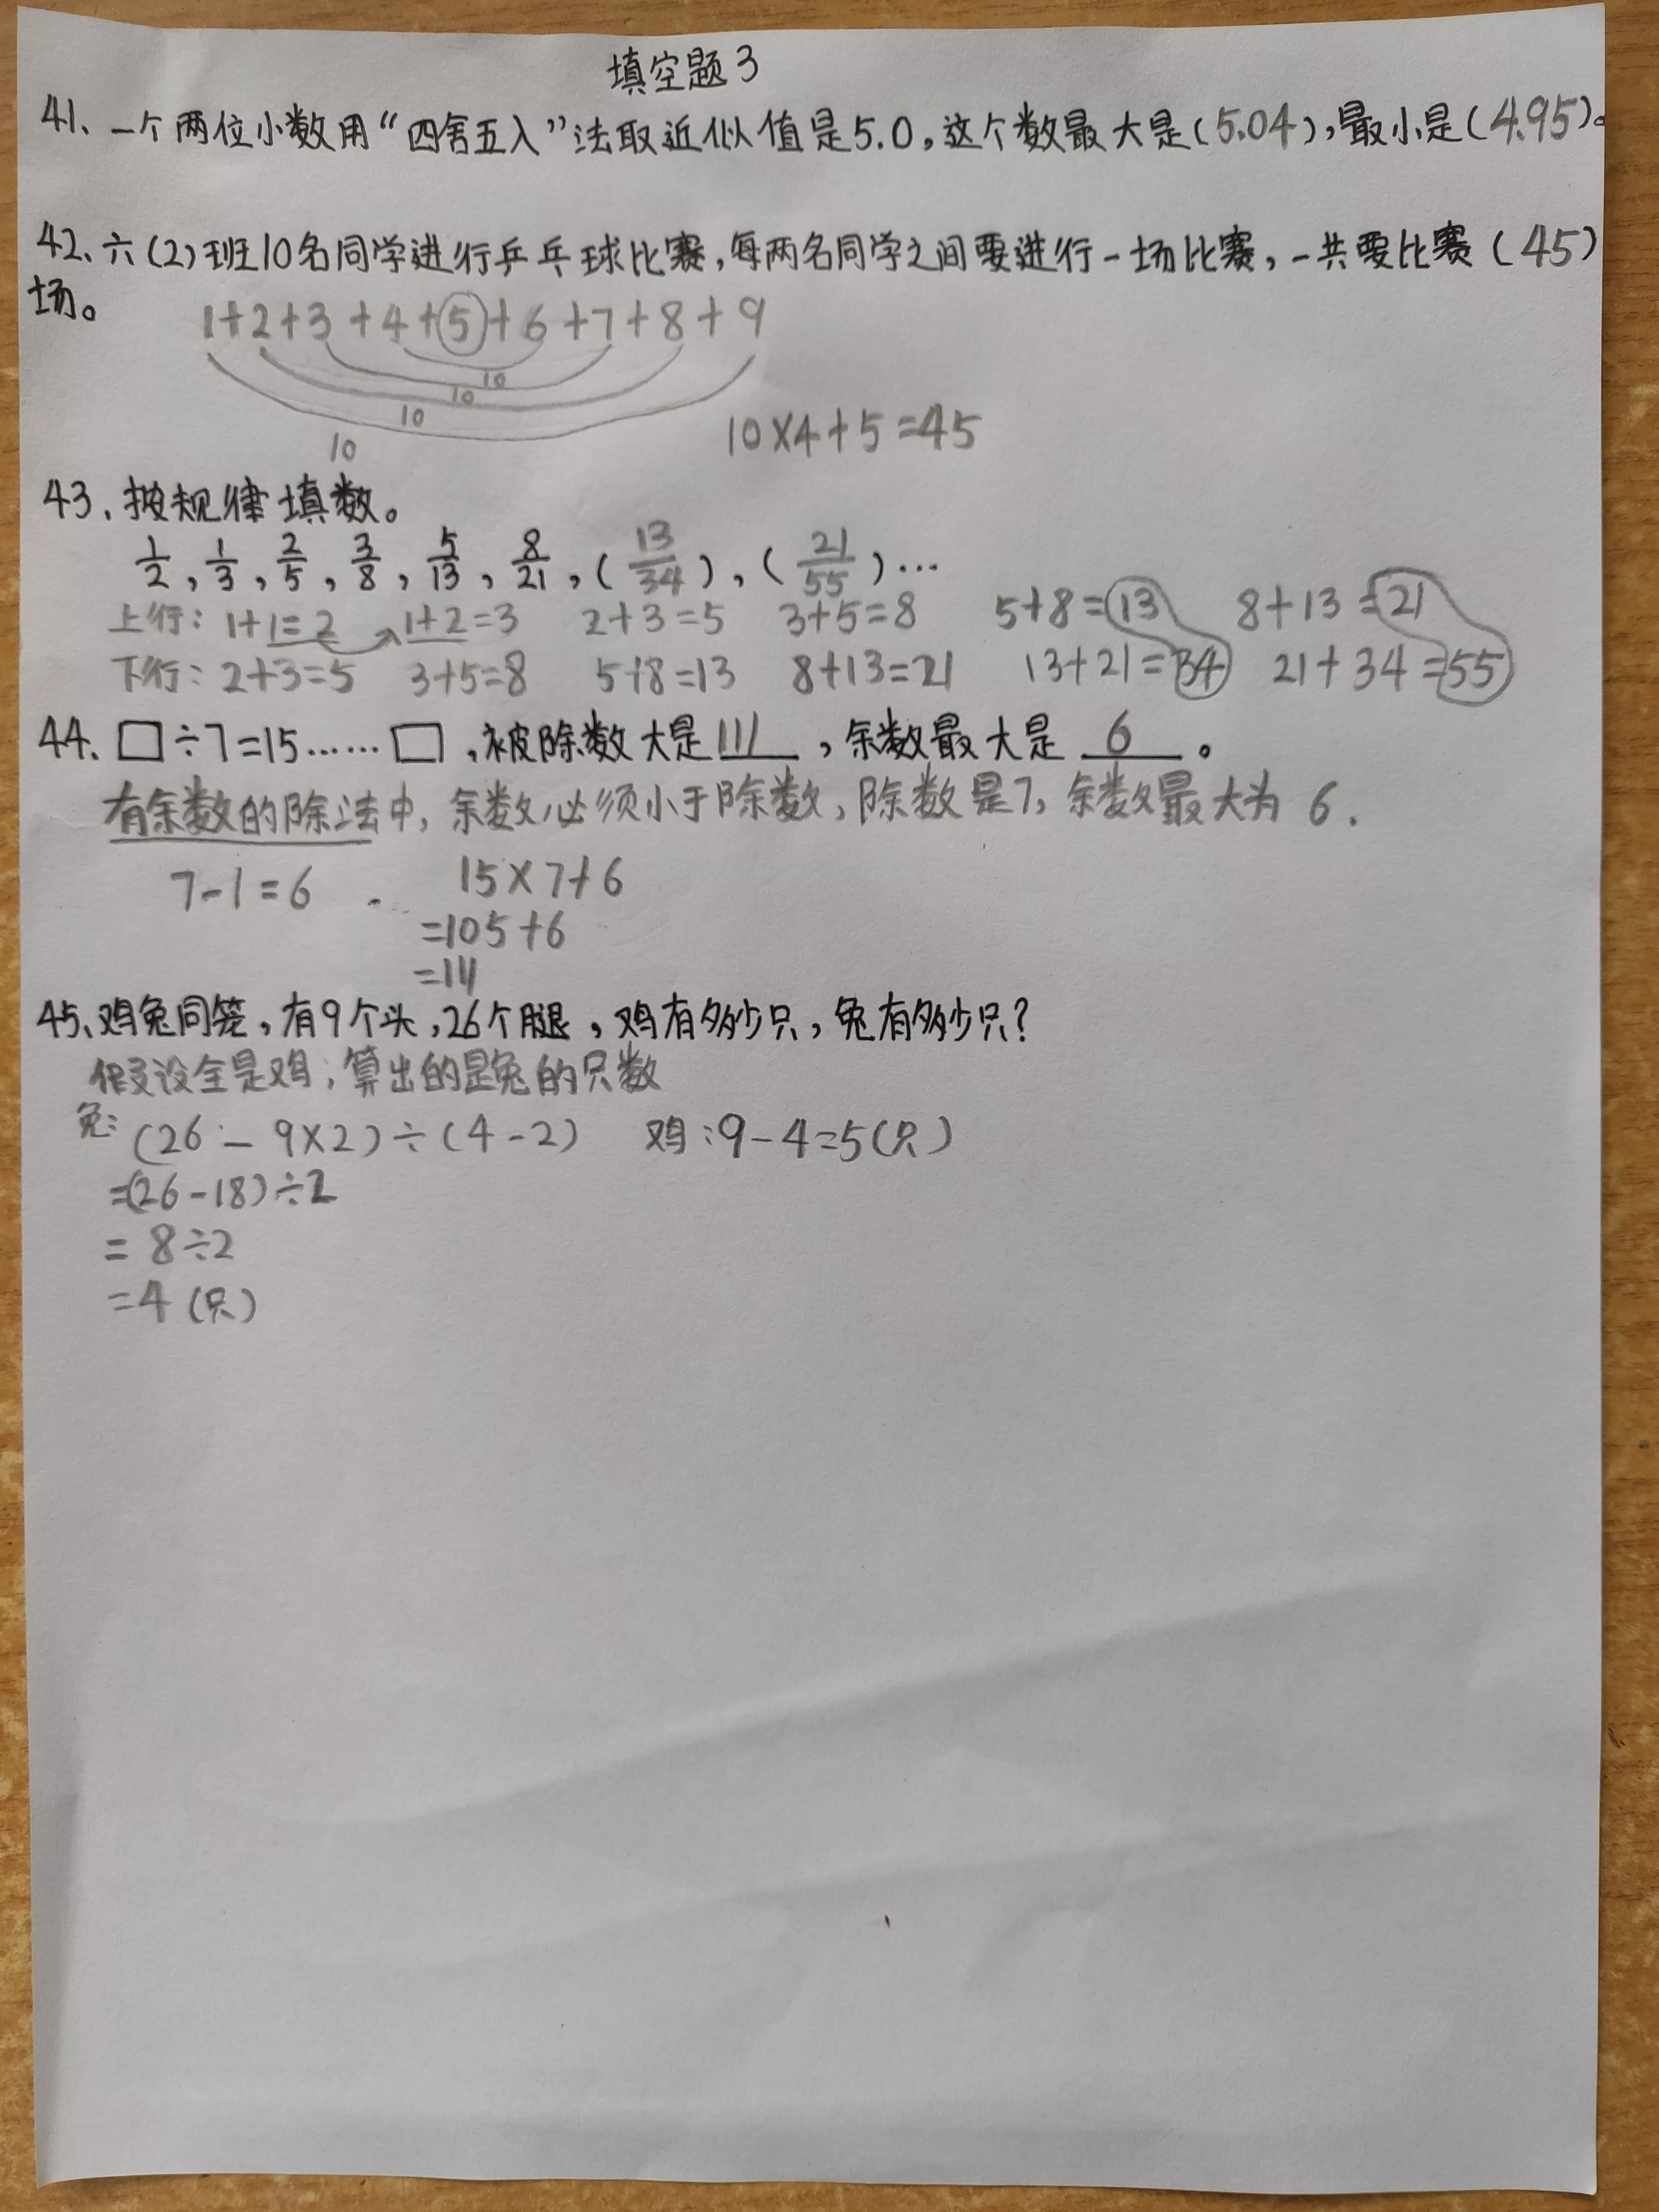 填空题3
41、一个两位小数用“四舍五入”法取近似值是5.0,这个数最大是(5.04),最小是(4.95)。
42、六(2)班10名同学进行乒乓球比赛,每两名同学之间要进行一场比赛,一共要比赛(45)
场。
1+2+3+4+5+6+7+8+9
10
10
10
10
10×4+5=45
43、按规律填数。
1/2,1/3,2/5,3/8,5/13,8/21,(13/34),(21/55)…
上行:1+1=2 1+2=3 2+3=5 3+5=8 5+8=13 8+13=21
下行:2+3=5 3+5=8 5+8=13 8+13=21 13+21=34 21+34=55
44、□÷7=15……□,被除数大是111,余数最大是6。
有余数的除法中,余数必须小于除数,除数是7,余数最大为6.
7-1=6 15×7+6
=105+6
=111
45、鸡兔同笼,有9个头,26个腿,鸡有多少只,兔有多少只?
假设全是鸡;算出的是兔的只数
兔:(26-9×2)÷(4-2) 鸡:9-4=5(只)
=(26-18)÷2
=8÷2
=4(只)